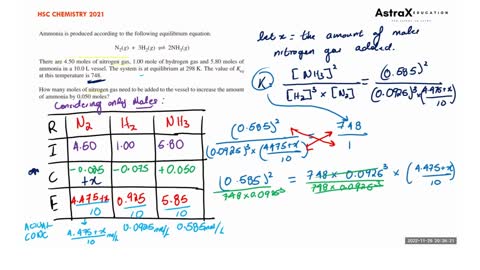 HSC CHEMISTRY 2021
AstraX EDUCATION
Ammonia is produced according to the following equilibrium equation.
N₂(g) + 3H₂(g) ⇌ 2NH₃(g)
There are 4.50 moles of nitrogen gas, 1.00 mole of hydrogen gas and 5.80 moles of
ammonia in a 10.0 L vessel. The system is at equilibrium at 298 K. The value of Keq
at this temperature is 748.
How many moles of nitrogen gas need to be added to the vessel to increase the
amount of ammonia by 0.050 moles?
Considering only Moles:
R N₂ H₂ NH₃
I 4.50 1.00 5.80
C -0.025 +x -0.075 +0.050
E 4.475+x/10 0.925/10 5.85/10
ACTUAL CONC 4.475+x/10 m/L 0.0925m/L 0.585m/L
let x = the amount of moles
nitrogen gas added.
K = [NH₃]²/[H₂]³ × [N₂] = (0.585)²/(0.0925)³ × (4.475+x/10)
(0.585)²/(0.0925³ × (4.475+x/10)) = 748/1
(0.585)²/748 × 0.0925³ = 748 × 0.0925³/748 × 0.0925³ × (4.475+x/10)
2022-11-26 20:26:21